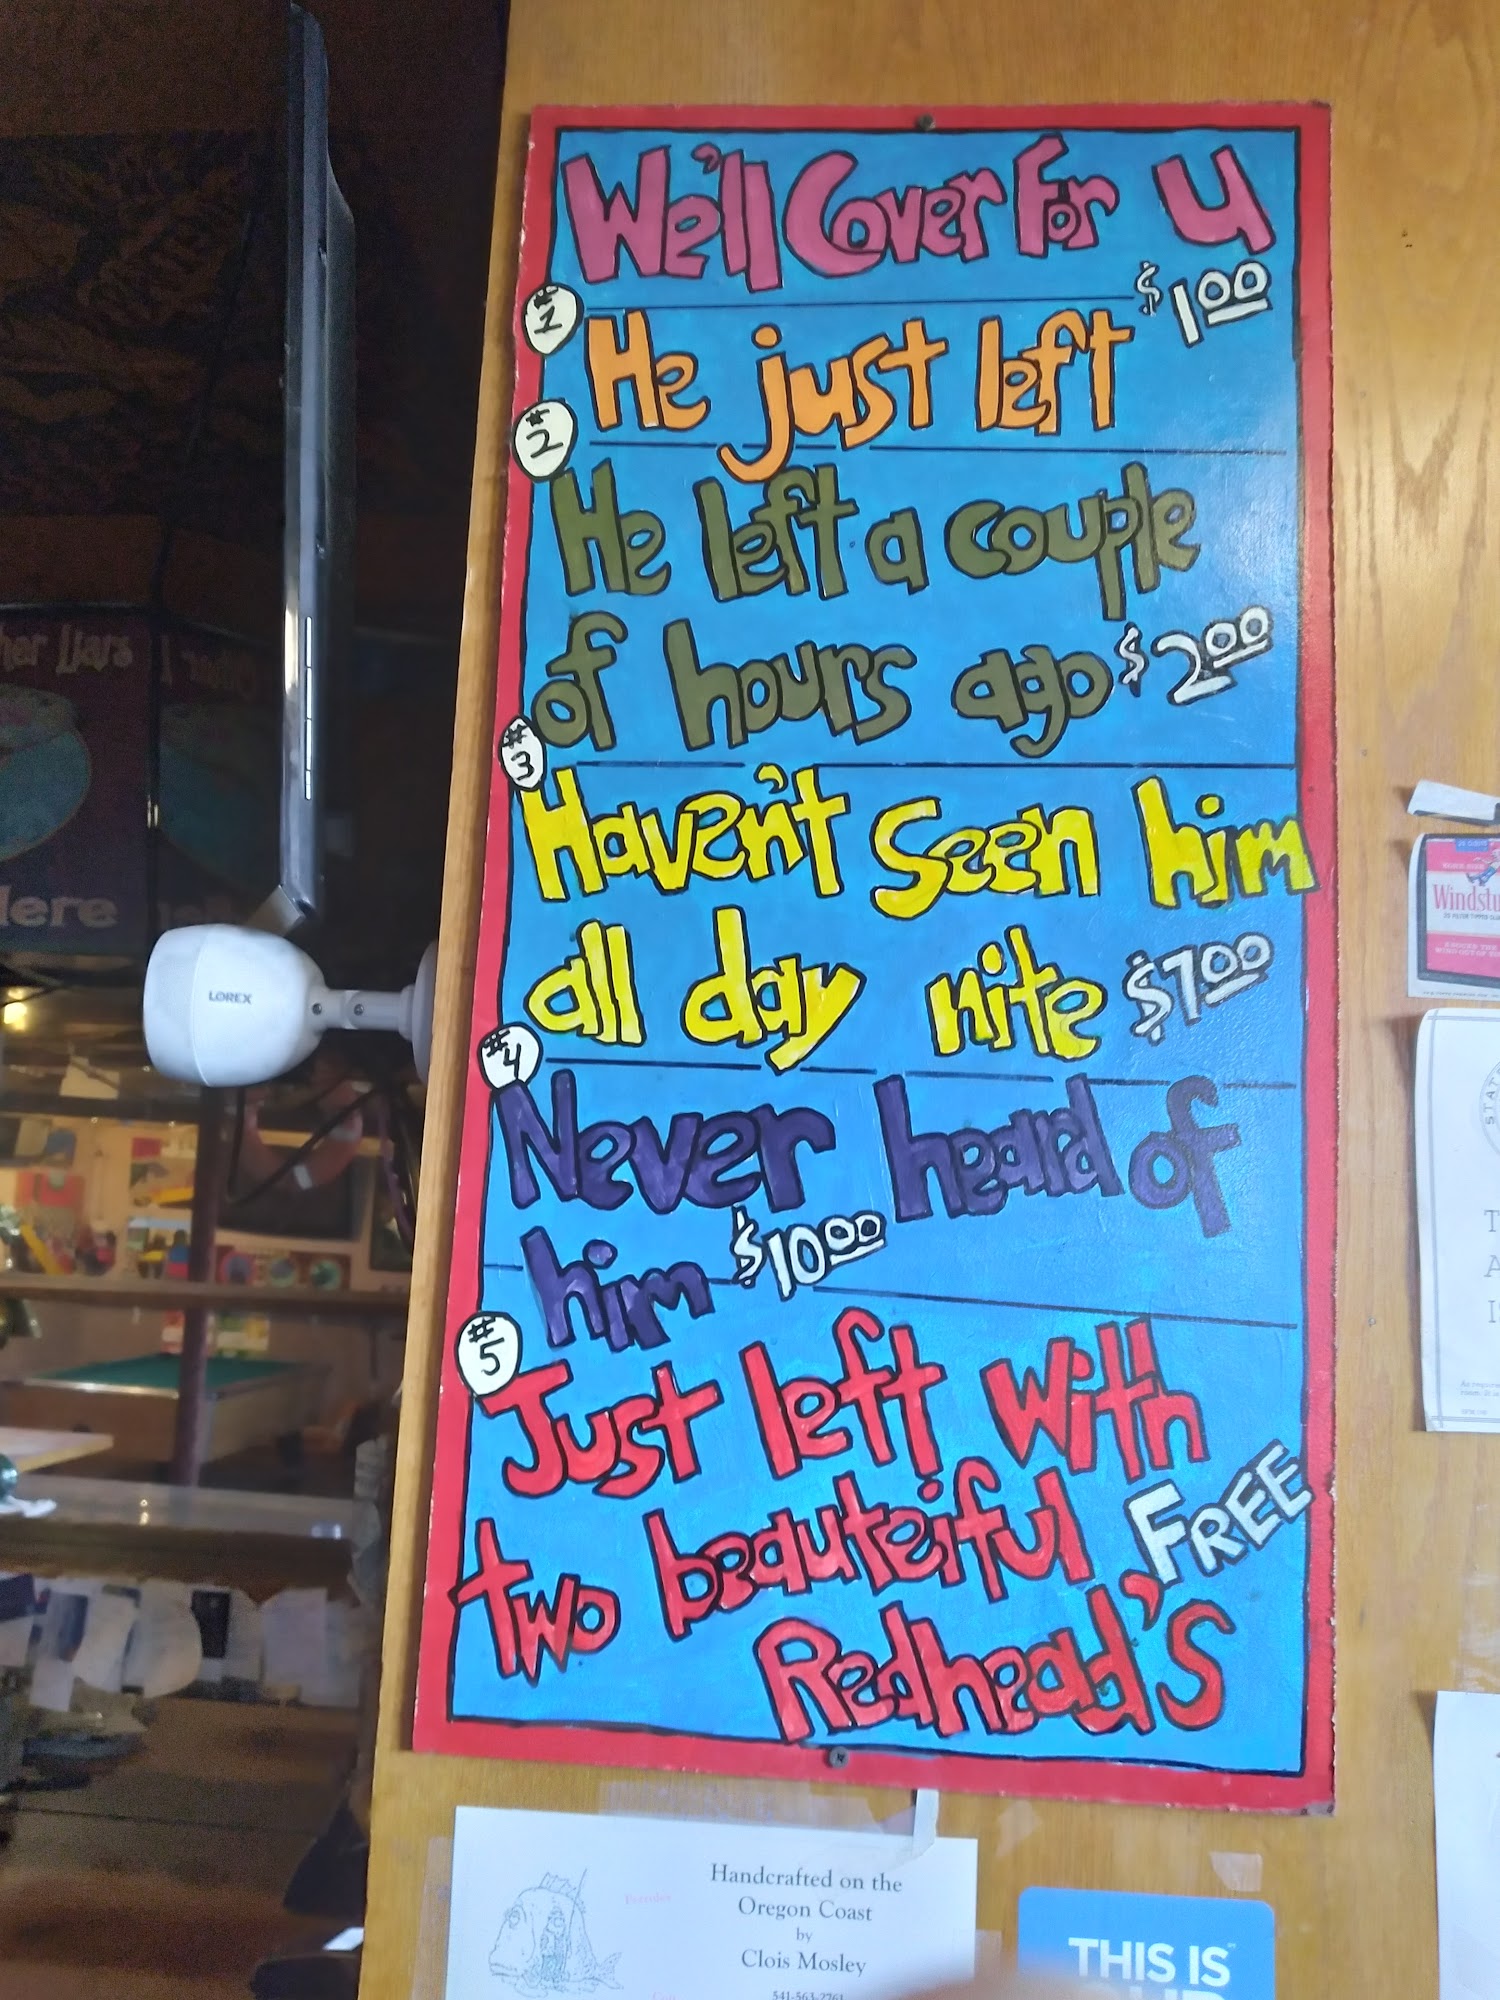 We'll Cover For U
#1
$1.00
He just left
#2
He left a couple
of hours ago $2.00
#3
Haven't seen him
all day nite $7.00
#4
Never heard of
him $10.00
#5
Just left with
two beauteiful FREE
Redhead's
LOREX
her Liars
Here
Windstu
Handcrafted on the
Oregon Coast
by
Clois Mosley
541-563-2761
THIS IS